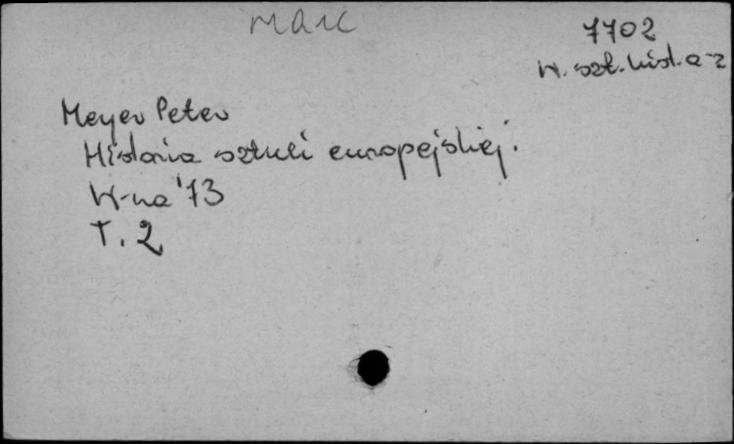 MARC
7702
W. szt. hist. a-z
Meyer Peter
Historia sztuki europejskiej.
W-wa '73
T. 2